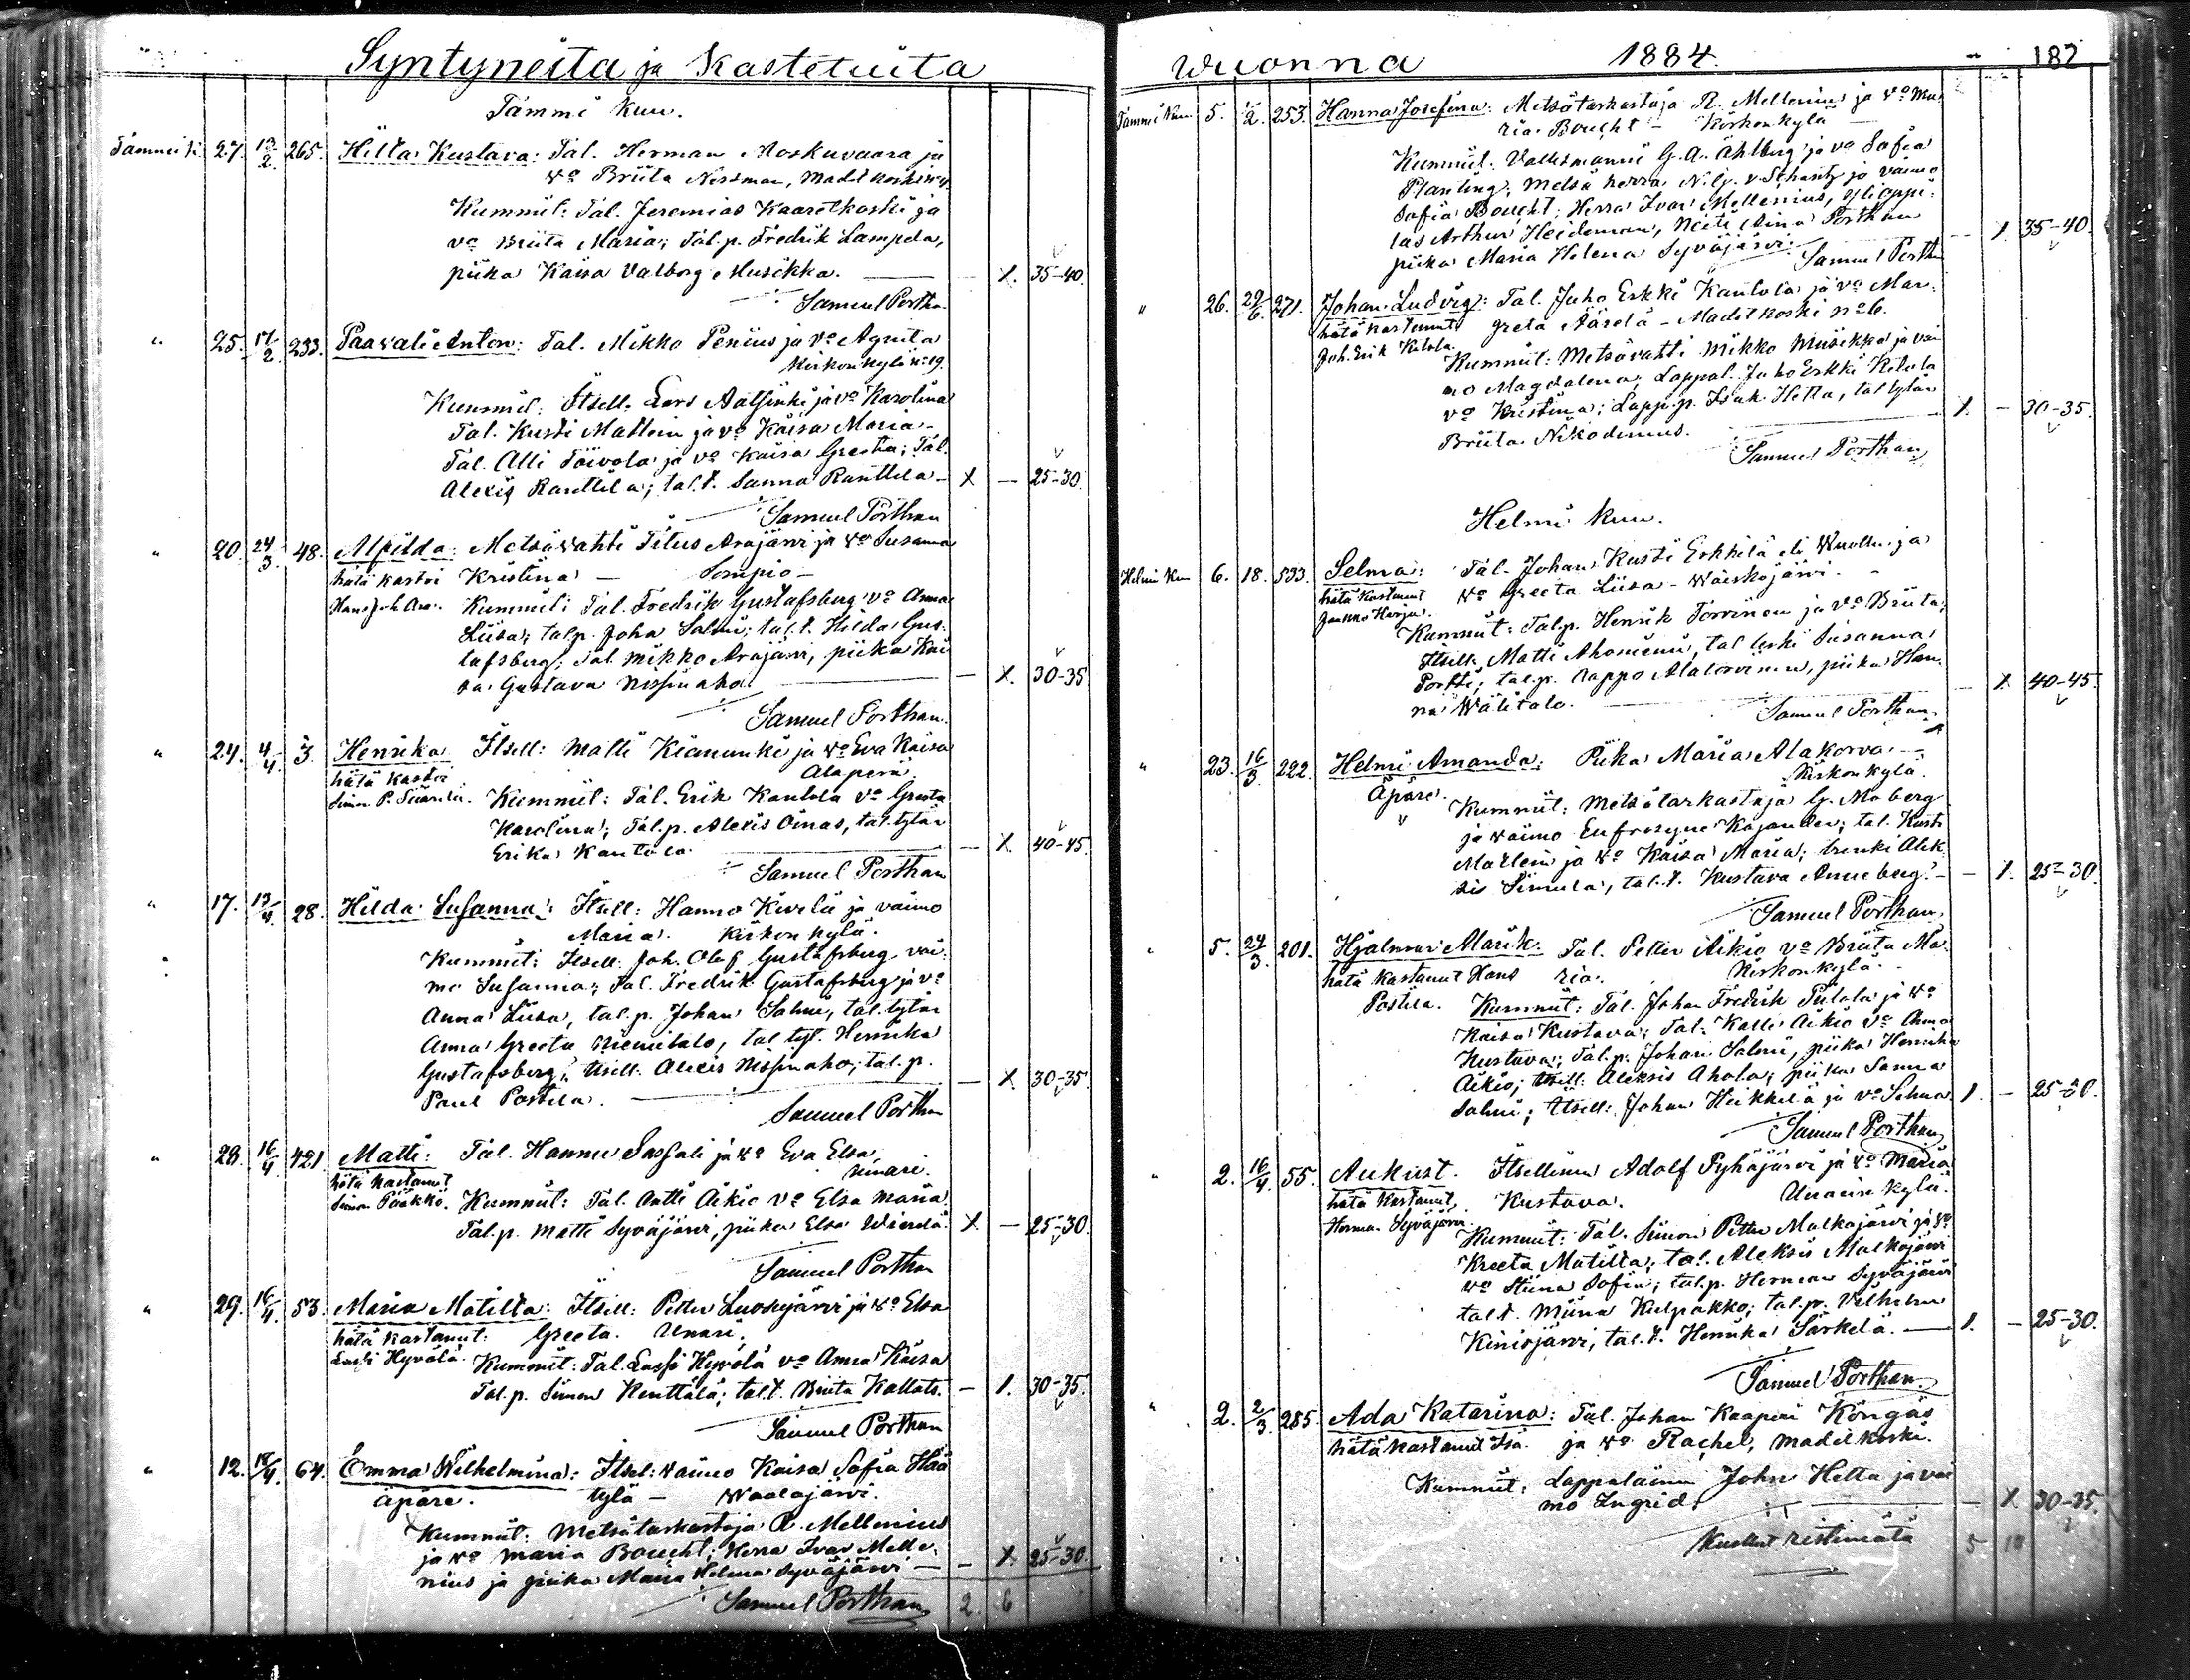 Syntyneitä ja Kastetuita
Tammi Kuu.
Tammi k. 27. 12/2 265. Hilta Kustava: Tal. Herman Moskuvaara ja
vo Briita Nissman, Madit koski
Kummit: Tal. Jeremias Kaaretkoski ja
vo Briita Maria; Tal. p. Fredrik Lampela,
piika Kaisa Valborg Musikka. — X. 35-40.
Samuel Portha
" 25. 17/2 233. Paavali Anton: Tal. Mikko Penius ja vo Agneta
Kirkon kylä No 19.
Kummit: Itsell. Lars Aatsinki ja vo Karolina
Tal. Kusti Mattein ja vo Kaisa Maria
Tal. Olli Toivola ja vo Kaisa Greetta; Tal.
Alexis Ranttila; tal. t. Sanna Ranttila - X — 25-30.
Samuel Porthan
" 20. 24/3 48. Alfilda: Metsävahti Titus Arajärvi ja vo Susanna
hätä kastoi Kristina — Sompio —
Hans Joh. Ara. Kummit: Tal. Fredrik Gustafsberg vo Anna
Liisa; tal. p. Joha Salmi; tal. t. Hilda Gus-
tafsberg; Tal. Mikko Arajärvi, piika Kai
sa Gustava Nissinaho — X. 30-35
Samuel Porthan.
" 24. 4/4 3. Henrika Itsell: Matti Kiamunki ja vo Eva Kaisa
hätä kastoi Alaperä
Simo P. Siirilä. Kummit: Tal. Erik Kantola vo Greeta
Karolina; Tal. p. Alexis Oinas, tal. tytär
Erika Kantola — X. 40-45
Samuel Porthan
" 17. 13/4 28. Hilda Susanna: Itsell: Hanno Kivelä ja vaimo
Maria. Kirkon kylä.
Kummit: Itsell. Joh. Olof Gustafsberg vai-
mo Susanna; Tal. Fredrik Gustafsberg ja vo
Anna Liisa, tal. p. Johan Salmi, tal. tytär
Anna Greeta Niemitalo, tal tyt. Henrika
Gustafsberg; Itsell. Alexis Nissinaho; tal. p.
Paul Postila. — X. 30-35
Samuel Portha
" 28. 16/4 421. Matti: Tal. Hannu Sassali ja vo Eva Elsa
hätä kastanut Unari.
Simon Pääkkö. Kummit: Tal. Antti Aikio vo Elsa Maria
Tal. p. Matti Syväjärvi, piika Elsa Wierelä. X — 25-30
Samuel Porthan
" 29. 16/4 53. Maria Matilta: Itsell: Petter Luosujärvi ja vo Elsa
hätä kastanut: Greeta. Unari.
Lassi Hyvölä. Kummit: Tal. Lassi Hyvölä vo Anna Kaisa
Tal. p. Simon Kenttälä; tal. t. Briita Kallats. — X. 30-35
Samuel Porthan
" 12. 18/4 64. Emma Wilhelmina: Itsel: vaimo Kaisa Sofia Hää
äpäre. tylä — Waalajärvi.
Kummit: Metsätarkastaja R. Mellenius
ja vo Maria Boucht; Herra Ivar Melle-
nius ja piika Maria Helena Syväjärvi — X. 25-30.
Samuel Porthan 2 6
Wuonna 1884. 182
Tammi Kuu 5. 1/2. 253. Hanna Josefina: Metsätarkastaja R. Mellenius ja vo Ma-
ria Boucht — Kirkon kylä —
Kummit: Vallesmanni G. A. Ahlberg ja vo Sofia
Planting; Metsä herra N. G. v. Schantz ja vaimo
Sofia Boucht; Herra Ivar Mellenius, Ylioppi-
las Arthur Heideman, Neiti Aina Porthan
piika Maria Helena Syväjärvi — X. 35-40.
Samuel Portha
" 26. 29/6 271. Johan Ludvig: Tal. Juho Erkki Kantola ja vo Mar-
hätä kastanut greta Äärelä - Madit koski No 6.
Joh. Erik Kitola. Kummit: Metsävahti Mikko Musikka ja vai
mo Magdalena; Lappal. Juho Erkki Kitola
vo Kristina; Lapp. p. Isak Hetta, tal tytär
Briita Nikodemus. X. — 30-35.
Samuel Porthan
Helmi kuu.
Helmi Kuu 6. 18. 533. Selma: Tal. Johan Kusti Erkkilä eli Wuollu ja
hätä kastanut vo Greeta Liisa - Waiskojärvi.
Kummit: Tal. p. Henrik Torvinen ja vo Briita;
Itsell. Matti Ahoniemi, tal leski Susanna
Portti; tal. p. Aappo Alatorvinen, piika Han-
na Wälitalo. — X. 40-45.
Samuel Porthan
" 23. 16/3 222. Helmi Amanda: Piika Maria Alakorva —
Äpäre. Kirkon kylä.
Kummit: Metsätarkastaja G. Moberg
ja vaimo Eufrosyne Kajander; tal. Kusti
Mattein ja vo Kaisa Maria; trenki Alek-
sis Simula, tal. t. Kustava Anneberg. — X. 25-30.
Samuel Porthan
" 5. 24/3 201. Hjalmar Alarik. Tal. Petter Aikio vo Briita Ma
hätä kastanut Hans ria. Kirkon kylä.
Postila. Kummit: Tal. Johan Fredrik Pulola ja vo
Kaisa Kustava; Tal. Kalle Aikio vo Anna
Kustava; Tal. p. Johan Salmi, piika Henrika
Aikio; Itsell: Aleksis Ahola; piika Sanna
Salmi; Itsell: Johan Heikkilä ja vo Selma X. — 25-30.
Samuel Porthan
" 2. 16/4. 55. Aukust. Itsellinen Adolf Pyhäjärvi ja vo Maria
hätä kastanut, Kustava. Unarin kylä.
Herman Syväjärvi. Kummit: Tal. Simon Petter Malkajärvi ja vo
Kreeta Matilta; tal. Aleksis Malkajärvi
vo Stiina Sofia; tal. p. Herman Syväjärvi
tal t. Miina Kulpakko; tal. p. Velhelm
Kinisjärvi, tal. t. Henrika Särkelä. — X. — 25-30.
Samuel Porthan.
" 2. 2/3. 285. Ada Katarina: Tal. Johan Kaaperi Köngäs
hätä kastanut Isä. ja vo Rachel, Madit koski.
Kummit: Lappalainen John Hetta ja vai
mo Ingrid. — X 30-35
ristimätä 5 10